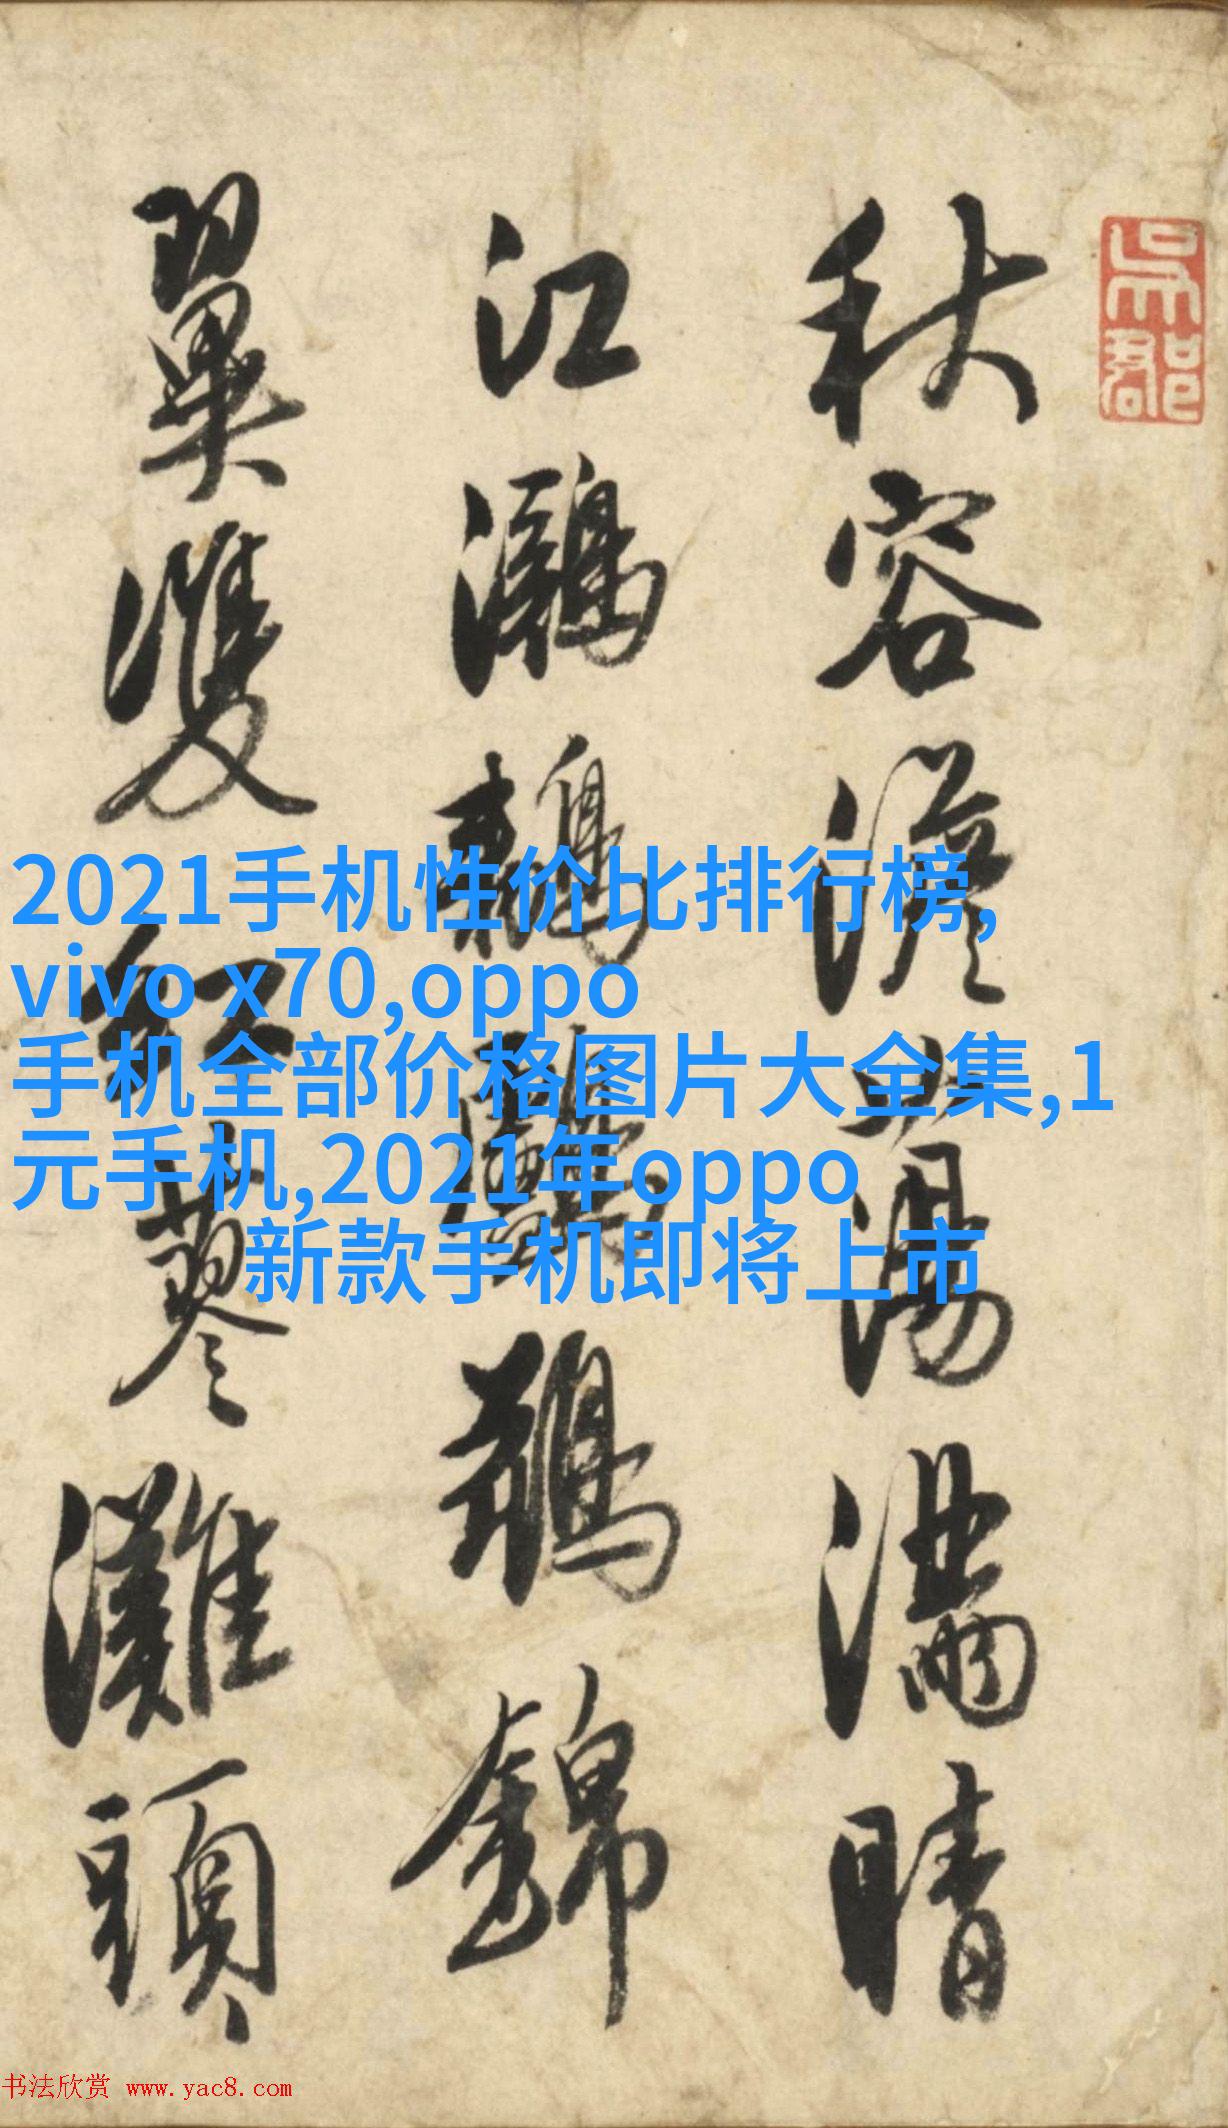 吳郡
秋容澹蕩滿晴
江鸂鶒鵜錦
翼雙紅蓼灘頭
2021手机性价比排行榜,
vivo x70,oppo
手机全部价格图片大全集,1
元手机,2021年oppo
新款手机即将上市
书法欣赏 www.yac8.com